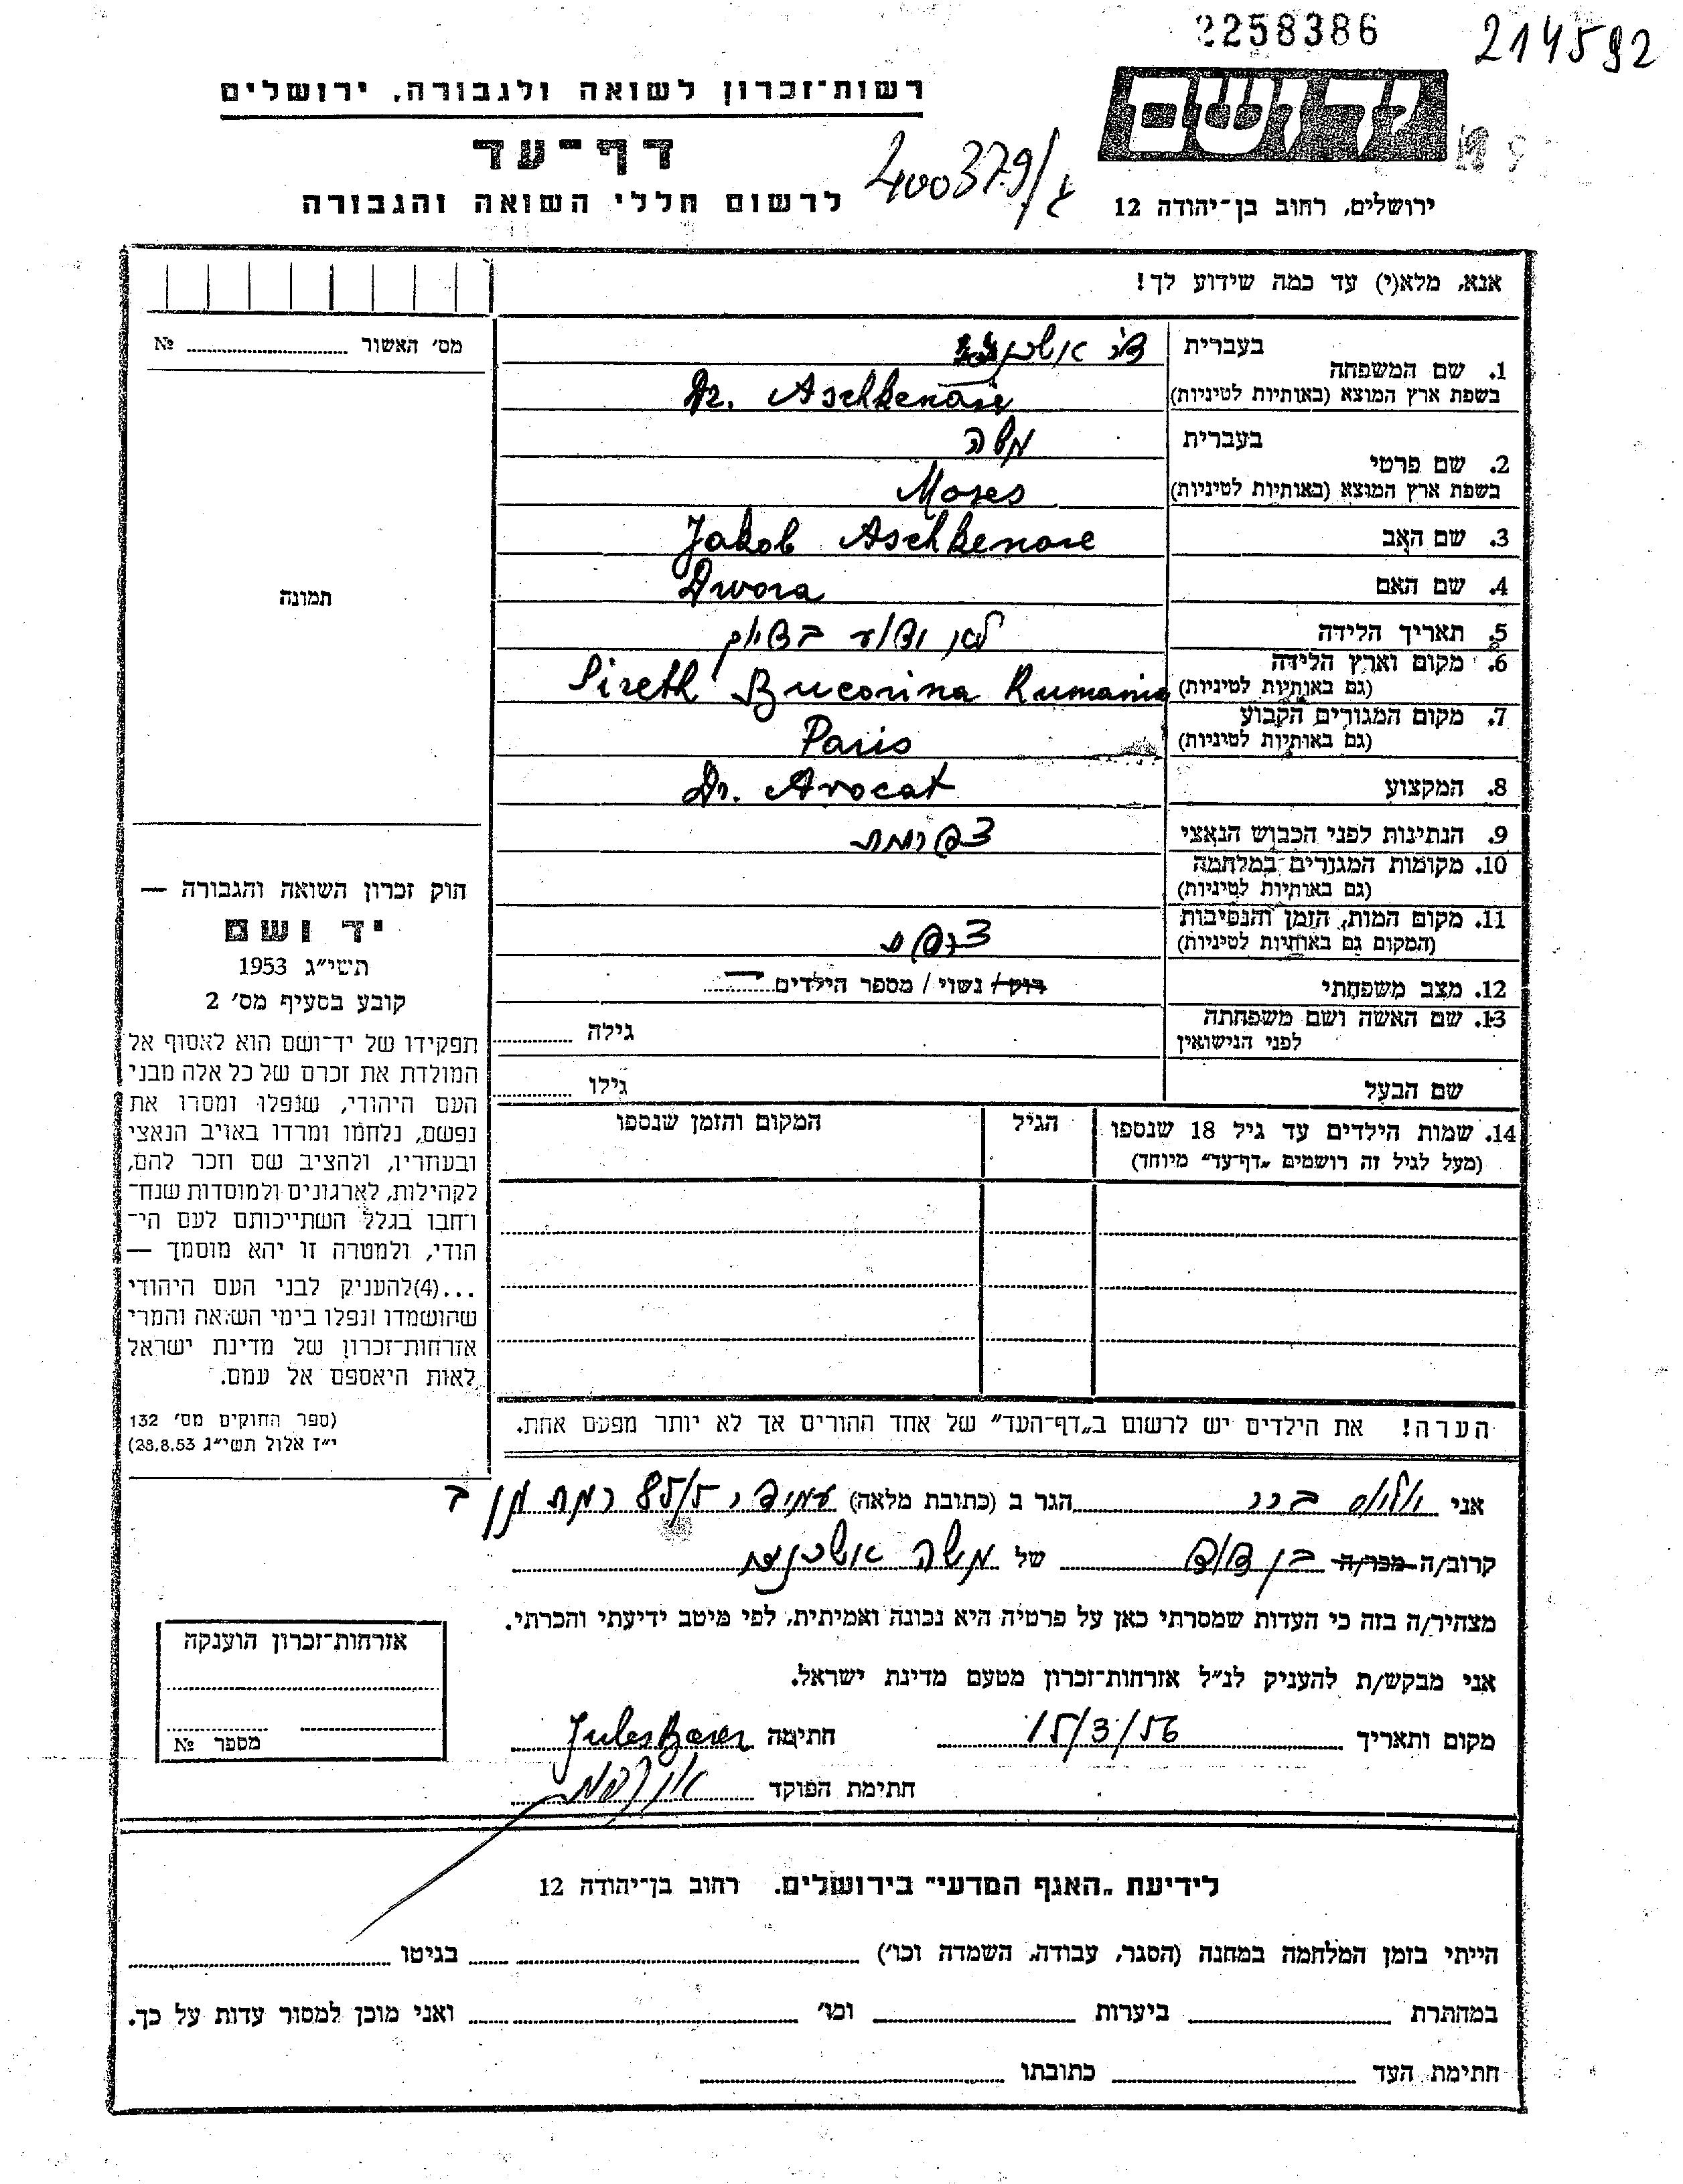 2258386
214592
רשות־זכרון לשואה ולגבורה, ירושלים
ידושם
דף־עד
400379/ג
לרשום חללי השואה והגבורה
ירושלים, רחוב בן־יהודה 12
אנא, מלא(י) עד כמה שידוע לך!
מס׳ האשור № ........
1. שם המשפחה
בעברית ד״ר אשכנזי
בשפת ארץ המוצא (באותיות לטיניות) Dr. Aschkenase
2. שם פרטי
בעברית משה
בשפת ארץ המוצא (באותיות לטיניות) Moses
3. שם האב Jakob Aschkenase
4. שם האם Dwora
תמונה
5. תאריך הלידה לא ידוע בדיוק
6. מקום וארץ הלידה
(גם באותיות לטיניות) Sireth Bucovina Rumania
7. מקום המגורים הקבוע
(גם באותיות לטיניות) Paris
8. המקצוע Dr. Avocat
9. הנתינות לפני הכבוש הנאצי צרפתית
10. מקומות המגורים במלחמה
(גם באותיות לטיניות)
11. מקום המות, הזמן והנסיבות
(המקום גם באותיות לטיניות) צרפת
12. מצב משפחתי רוק/ נשוי / מספר הילדים —
13. שם האשה ושם משפחתה
לפני הנישואין גילה ........
שם הבעל גילו ........
14. שמות הילדים עד גיל 18 שנספו
(מעל לגיל זה רושמים „דף־עד״ מיוחד)
הגיל
המקום והזמן שנספו
חוק זכרון השואה והגבורה —
יד ושם
תשי״ג 1953
קובע בסעיף מס׳ 2
תפקידו של יד־ושם הוא לאסוף אל
המולדת את זכרם של כל אלה מבני
העם היהודי, שנפלו ומסרו את
נפשם, נלחמו ומרדו באויב הנאצי
ובעוזריו, ולהציב שם וזכר להם,
לקהילות, לארגונים ולמוסדות שנח־
רחבו בגלל השתייכותם לעם הי־
הודי, ולמטרה זו יהא מוסמך —
...(4)להעניק לבני העם היהודי
שהושמדו ונפלו בימי השואה והמרי
אזרחות־זכרון של מדינת ישראל
לאות היאספם אל עמם.
(ספר החוקים מס׳ 132
י״ז אלול תשי״ג 28.8.53)
הערה! את הילדים יש לרשום ב„דף־העד״ של אחד ההורים אך לא יותר מפעם אחת.
אני יוליוס ברר הגר ב (כתובת מלאה) עמידר 85/5 רמת גן ב
קרוב/ה מכר/ה בן דוד של משה אשכנזי
מצהיר/ה בזה כי העדות שמסרתי כאן על פרטיה היא נכונה ואמיתית, לפי מיטב ידיעתי והכרתי.
אני מבקש/ת להעניק לנ״ל אזרחות־זכרון מטעם מדינת ישראל.
מקום ותאריך 15/3/56 חתימה Jules Barer
חתימת הפוקד
אזרחות־זכרון הוענקה
מספר №
לידיעת „האגף המדעי״ בירושלים. רחוב בן־יהודה 12
הייתי בזמן המלחמה במחנה (הסגר, עבודה, השמדה וכו׳) ........ בגיטו ........
במחתרת ........ ביערות ........ וכו׳ ........ ואני מוכן למסור עדות על כך.
חתימת העד ........ כתובתו ........